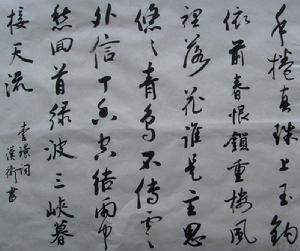 手捲真珠上玉鈎
依前春恨鎖重樓風
裡落花誰是主思
悠々青鳥不傳雲
外信丁香空結雨中
愁回首綠波三峽暮
接天流
李璟詞
漢衛書